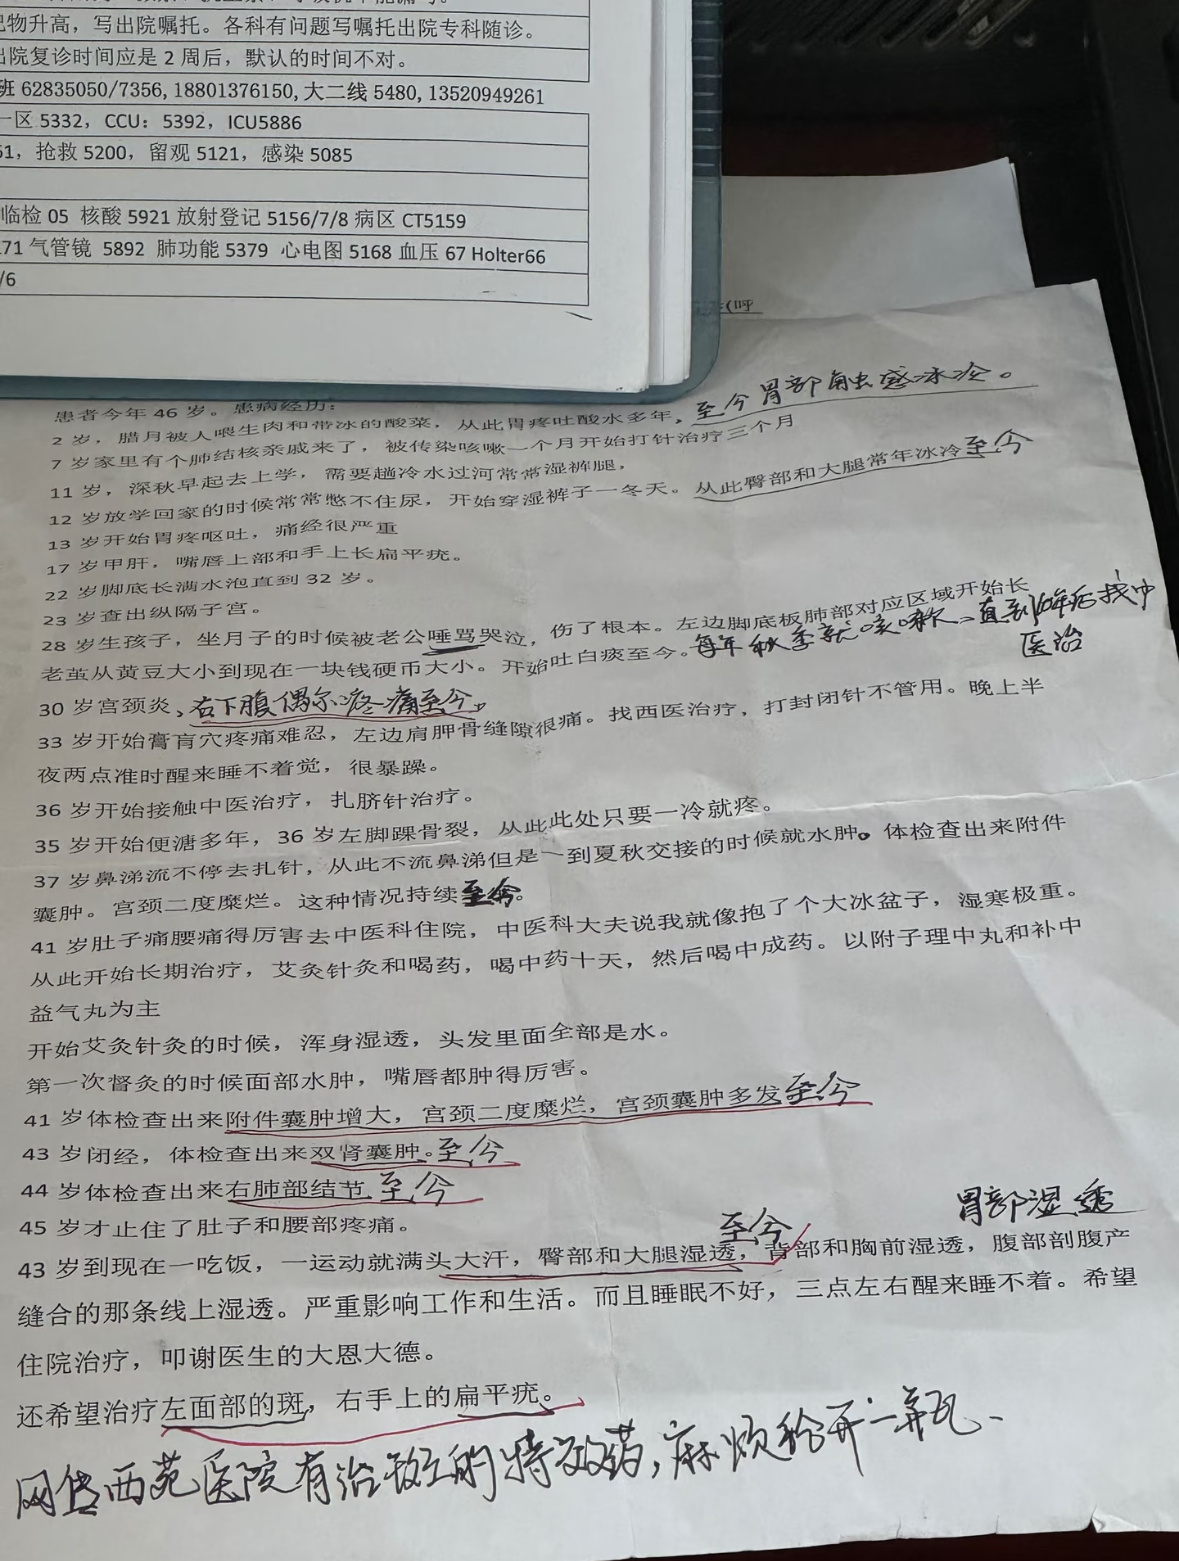 物升高，写出院嘱托。各科有问题写嘱托出院专科随诊。
出院复诊时间应是 2 周后，默认的时间不对。
班 62835050/7356,18801376150,大二线 5480,13520949261
一区 5332，CCU：5392，ICU5886
51，抢救 5200，留观 5121，感染 5085
临检 05 核酸 5921 放射登记 5156/7/8 病区 CT5159
71 气管镜 5892 肺功能 5379 心电图 5168 血压 67 Holter66
/6
(呼
患者今年 46 岁。患病经历：
2 岁，腊月被人喂生肉和带冰的酸菜，从此胃疼吐酸水多年，至今胃部触感冰冷。
7 岁家里有个肺结核亲戚来了，被传染咳嗽一个月开始打针治疗三个月
11 岁，深秋早起去上学，需要趟冷水过河常常湿裤腿，
12 岁放学回家的时候常常憋不住尿，开始穿湿裤子一冬天。从此臀部和大腿常年冰冷至今
13 岁开始胃疼呕吐，痛经很严重
17 岁甲肝，嘴唇上部和手上长扁平疣。
22 岁脚底长满水泡直到 32 岁。
23 岁查出纵隔子宫。
28 岁生孩子，坐月子的时候被老公唾骂哭泣，伤了根本。左边脚底板肺部对应区域开始长
老茧从黄豆大小到现在一块钱硬币大小。开始吐白痰至今。每年秋季就咳嗽一直到10年后找中
医治
30 岁宫颈炎、右下腹偶尔疼痛至今。
33 岁开始膏肓穴疼痛难忍，左边肩胛骨缝隙很痛。找西医治疗，打封闭针不管用。晚上半
夜两点准时醒来睡不着觉，很暴躁。
36 岁开始接触中医治疗，扎脐针治疗。
35 岁开始便溏多年，36 岁左脚踝骨裂，从此此处只要一冷就疼。
37 岁鼻涕流不停去扎针，从此不流鼻涕但是一到夏秋交接的时候就水肿。体检查出来附件
囊肿。宫颈二度糜烂。这种情况持续至今。
41 岁肚子痛腰痛得厉害去中医科住院，中医科大夫说我就像抱了个大冰盆子，湿寒极重。
从此开始长期治疗，艾灸针灸和喝药，喝中药十天，然后喝中成药。以附子理中丸和补中
益气丸为主
开始艾灸针灸的时候，浑身湿透，头发里面全部是水。
第一次督灸的时候面部水肿，嘴唇都肿得厉害。
41 岁体检查出来附件囊肿增大，宫颈二度糜烂，宫颈囊肿多发至今
43 岁闭经，体检查出来双肾囊肿。至今
44 岁体检查出来右肺部结节 至今
45 岁才止住了肚子和腰部疼痛。
至今 胃部湿透
43 岁到现在一吃饭，一运动就满头大汗，臀部和大腿湿透，背部和胸前湿透，腹部剖腹产
缝合的那条线上湿透。严重影响工作和生活。而且睡眠不好，三点左右醒来睡不着。希望
住院治疗，叩谢医生的大恩大德。
还希望治疗左面部的斑，右手上的扁平疣。
网传西苑医院有治斑的特效药，麻烦给开一瓶、